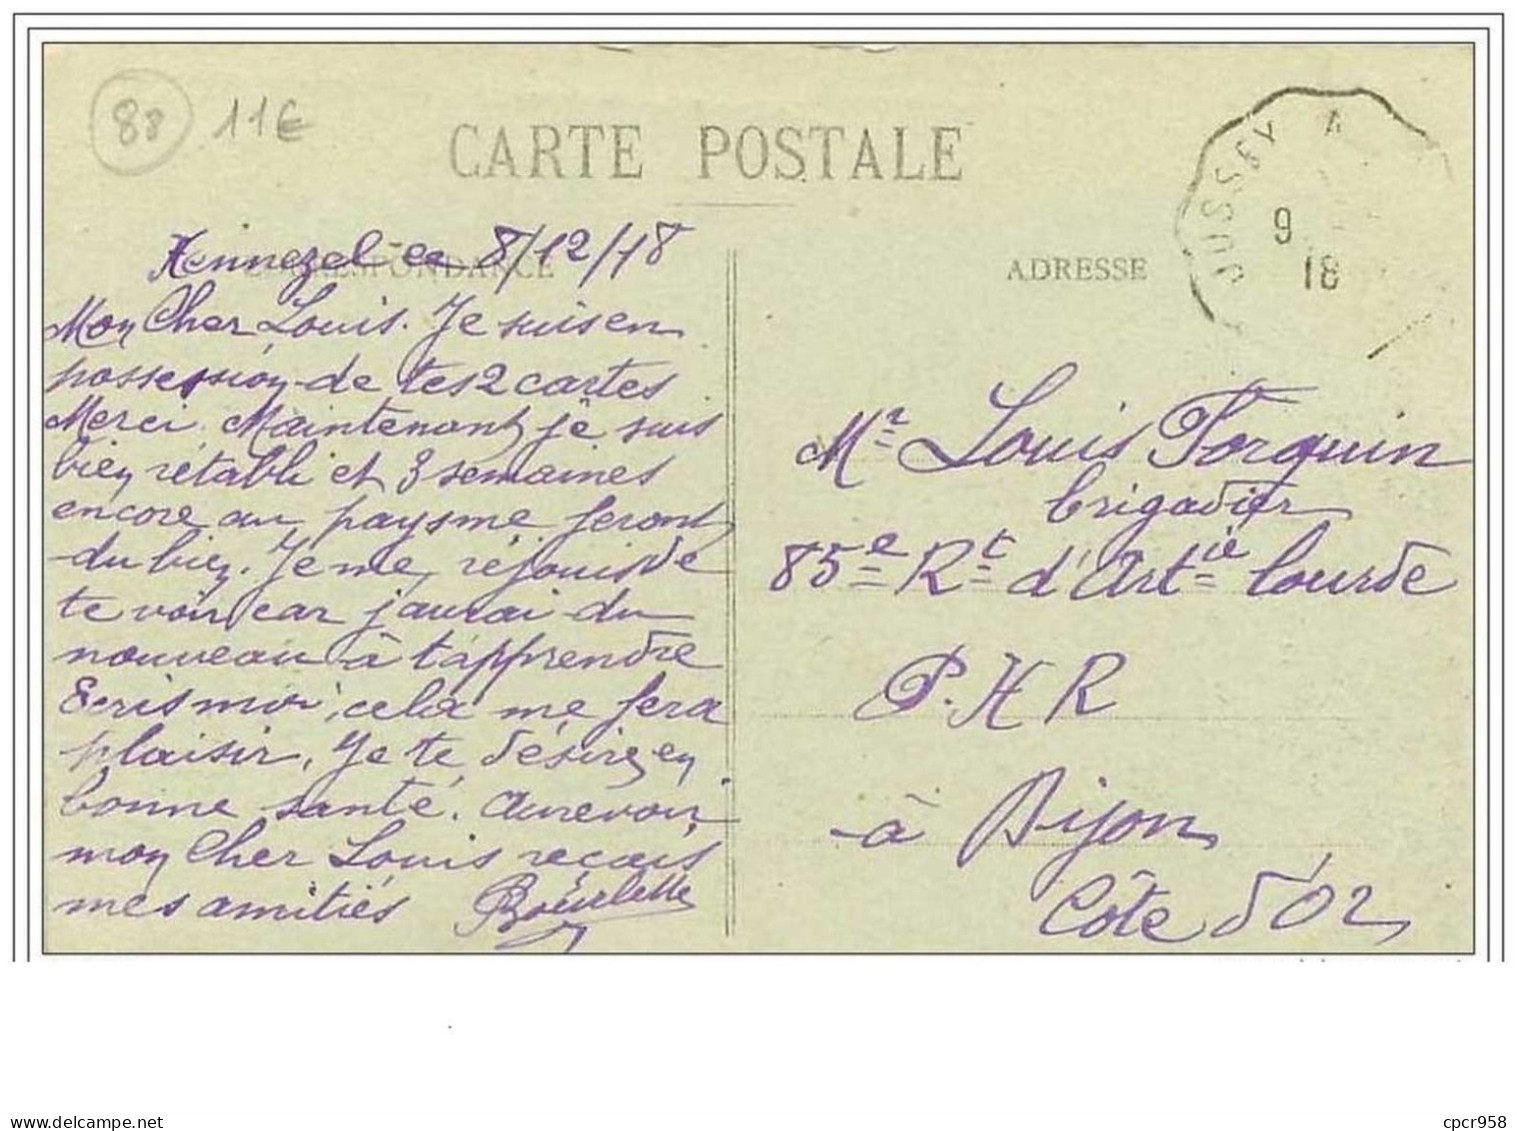 88 11€
CARTE POSTALE
JUSSEY A
9
18
CORRESPONDANCE
ADRESSE
Hennezel le 8/12/18
Mon Cher Louis. Je suis en
possession de tes 2 cartes
Merci. Maintenant je suis
bien rétabli et 3 semaines
encore au pays me feront
du bien. Je me réjouis de
te voir car j'aurai du
nouveau à t'apprendre
Ecris moi, cela me fera
plaisir. Je te désire en
bonne santé. Aurevoir
mon Cher Louis reçois
mes amitiés
Mr Louis Forquin
brigadier
85e Rt d'Artie lourde
P.H R
à Dijon
Côte d'Or
cpcr958